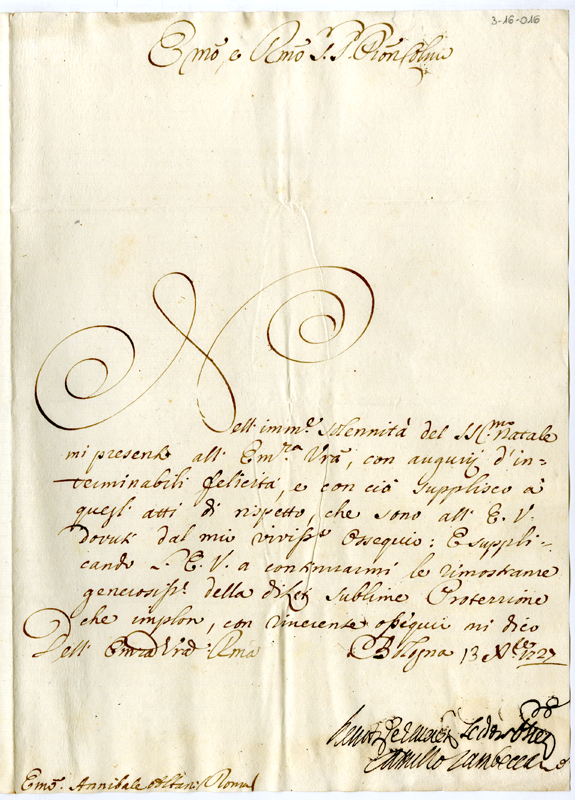 3-16-016
Emo e Rmo S. P. Pron Colmo
Nell' immte Solennità del SSmo Natale
mi presento all' Emza Vra, con augurij d'in=
terminabili felicità, e con ciò supplisco à
quegl' atti di rispetto, che sono all' E. V.
dovuti dal mio vivissmo ossequio: E suppli-
cando l' E. V. a continuarmi le rimostranze
generosissme della di lei sublime Protezzione
che imploro, con riverente ossequio mi dico
Dell' Emza Vra Rma Bologna 13 Xbre 1727
Camillo Zambeccari
Emo Annibale Albani Roma